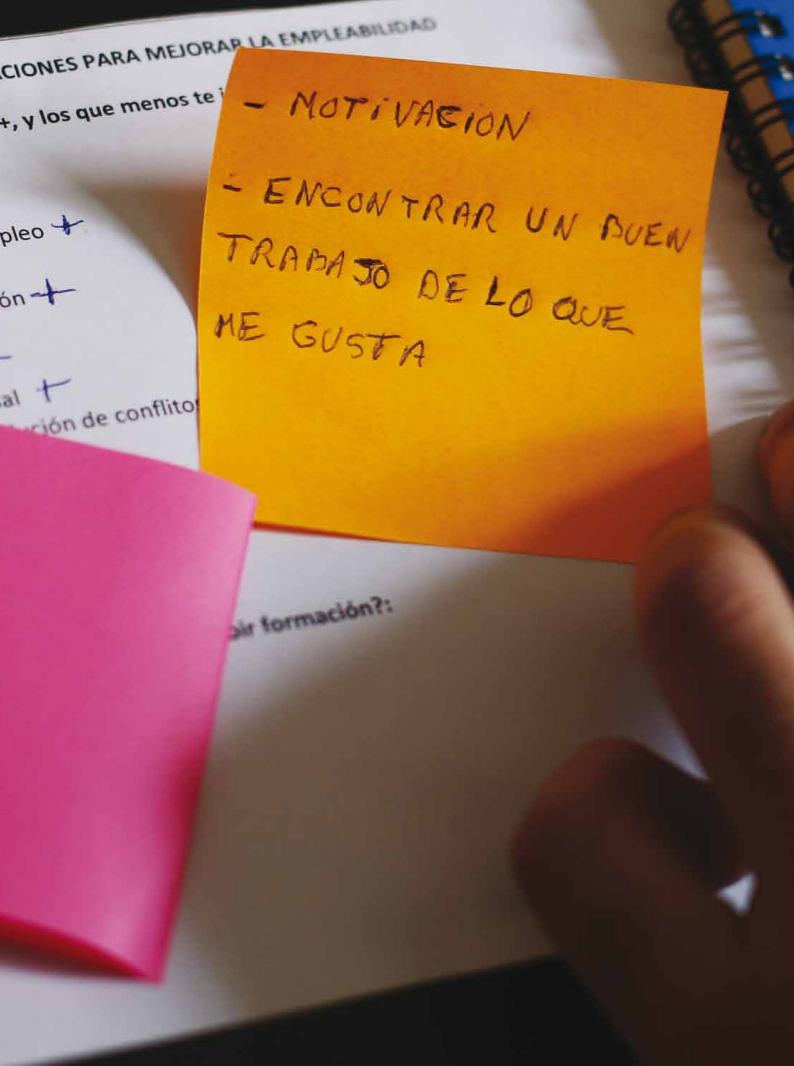 CIONES PARA MEJORAR LA EMPLEABILIDAD
+, y los que menos te i
pleo +
ón +
al +
ución de conflito
- MOTiVACiON
- ENCONTRAR UN BUEN
TRABAJO DE LO QUE
ME GUSTA
bir formación?: